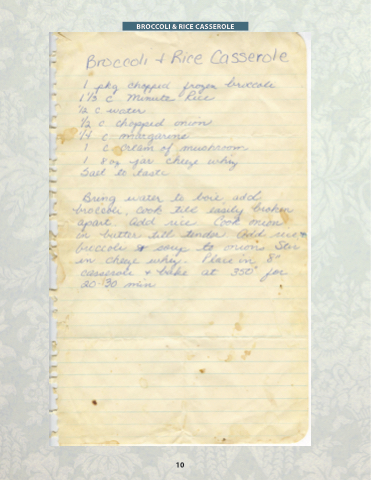 BROCCOLI & RICE CASSEROLE
Broccoli & Rice Casserole
1 pkg chopped frozen broccoli
1 1/3 c Minute Rice
1/2 c water
1/2 c chopped onion
1/4 c margarine
1 c cream of mushroom
1 8oz jar cheez whiz
Salt to taste
Bring water to boil, add
broccoli, cook till easily broken
apart. Add rice. Cook onion
in butter till tender. Add rice &
broccoli & soup to onion. Stir
in cheez whiz. Place in 8"
casserole & bake at 350° for
20-30 min
10